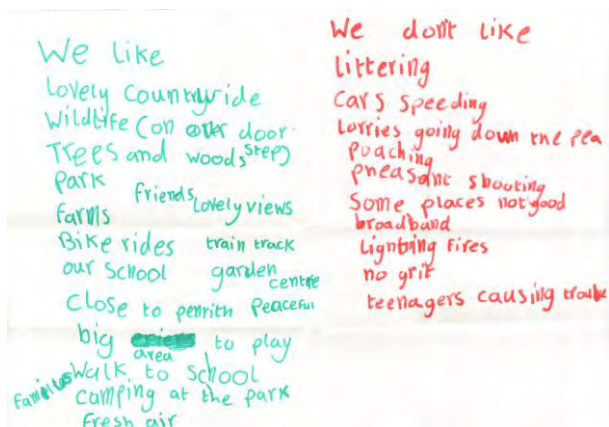 We like
Lovely Countryside
Wildlife (on our door
step)
Trees and woods
Park
friends
Lovely views
farms
Bike rides
train track
our school
garden
centre
Close to penrith
Peaceful
big
area
to play
Walk to school
families
camping at the park
fresh air
We don't like
littering
Cars speeding
Lorries going down the
poaching
pheasant shooting
Some places not good
broadband
Lightning fires
no grit
teenagers causing trouble